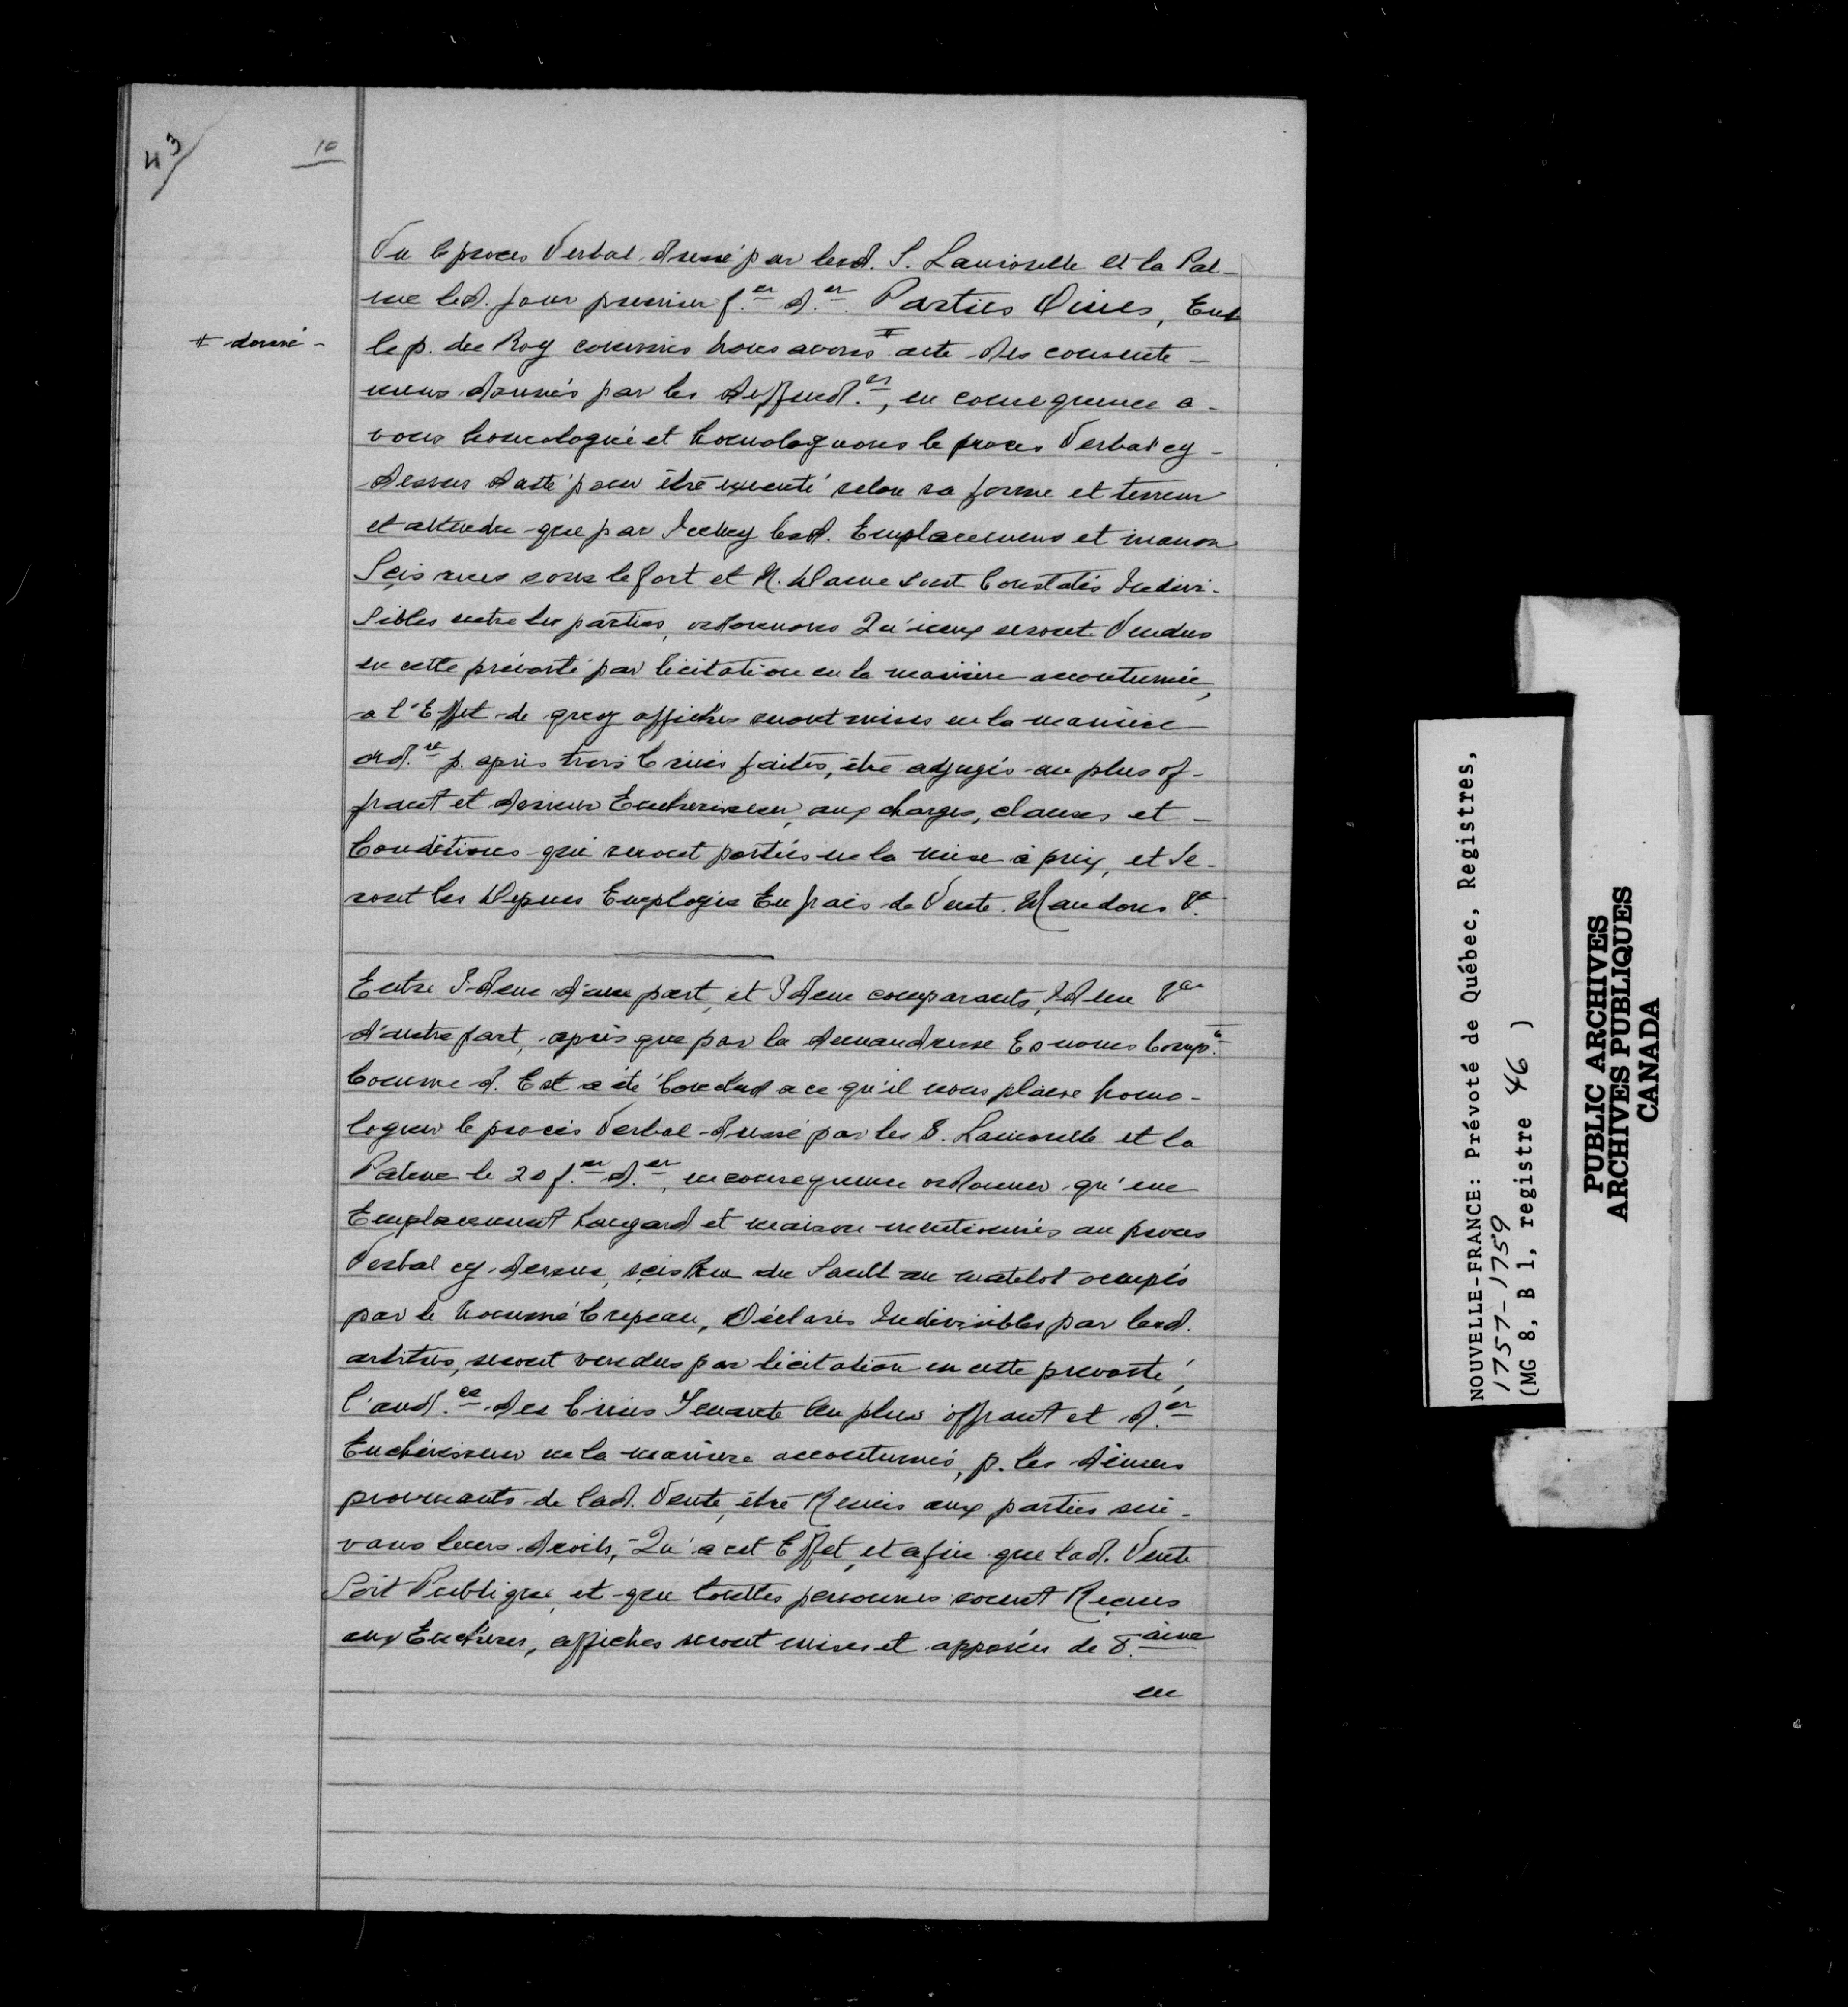 43
10
Vu le proces Verbal dressé par lesd. S. Lamorille et la Pal-
me led. jour premier f.er d.er Parties Ouies, Ent
le p. du Roy comis nous avons # acte des consente-
# donné -
mens donnés par les deffend.rs, en consequence a-
vons homologué et homologuons le proces Verbal cy-
dessus datté pour être executé selon sa forme et teneur
et attendu que par Iceluy lesd. Emplacemens et maison
Scis rues sous le fort et N. Dame sont Constatés Indivi-
sibles entre les parties, ordonnons Qu'iceux seront Vendus
en cette prévosté par licitation en la manière accoutumée,
a l'Effet de quoy affiches seront mises en la manière
ord.re p. après trois Criées faites, être adjugés au plus of-
frant et dernier Encherisseur, aux charges, clauses et -
Conditions qui seront portées en la mise à prix, et Se-
ront les Depens Employés En frais de Vente. Mandons &.
Entre Idem d'une part, et Idem comparants, Idem &ca
d'autre part, après que par la demandresse Es noms Comp.te
Comme d. Est a été Conclud a ce qu'il nous plaise homo-
loguer le procès Verbal dressé par les S. Lamorille et la
Palme le 20 f.er d.er, en consequence ordonner qu'une
Emplacement hangard et maison mentionnés au proces
Verbal cy-dessus, scis Rue du Sault au matelot occupés
par le nommé Crepeau, Déclarés Indivisibles par lesd.
arbitres, seront vendus par licitation en cette prevosté,
l'aud.ce des Criées Tenante Au plus offrant et d.er
Enchérisseur en la manière accoutumée, p. les deniers
provenants de lad. Vente, être Remis aux parties sui-
vans leurs droits, Qu'a cet Effet, et afin que lad. Vente
Soit Publique, et que touttes personnes soient Reçues
aux Enchères, affiches seront mises et apposées de 8.aine
en
NOUVELLE-FRANCE: Prévoté de Québec, Registres,
1757-1759
(MG 8, B 1, registre 46 )
PUBLIC ARCHIVES
ARCHIVES PUBLIQUES
CANADA